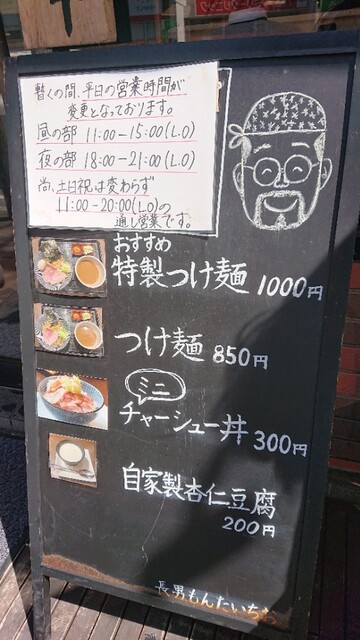 暫くの間、平日の営業時間が
変更となっております。
昼の部 11:00－15:00(L.O)
夜の部 18:00－21:00(L.O)
尚、土日祝は変わらず
11:00－20:00(L.O)の
通し営業です。
おすすめ
特製つけ麺 1000円
つけ麺 850円
ミニ
チャーシュー丼 300円
自家製杏仁豆腐
200円
長男もんたいちお